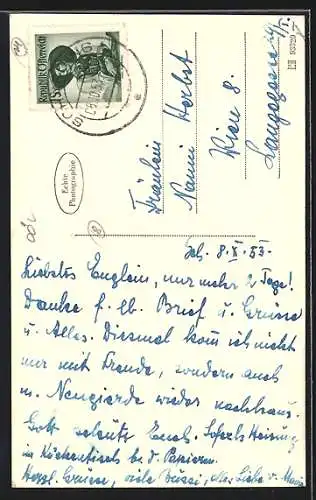 Republik Österreich
Echte
Photographie
Fräulein
Nanni Herbst
Wien 8.
Langegasse
8. X. 53.
Liebstes Englein, nur mehr 2 Tage!
Danke f. lb. Brief u. Grüsse
u. Alles. Diesmal kom ich nicht
nur mit Freude, sondern auch
m. Neugierde wieder nachhaus.
Gott schütz Euch.
im Küchentisch b. d. Papieren.
Herzl. Grüsse, viele Bussi, alles Liebe v.